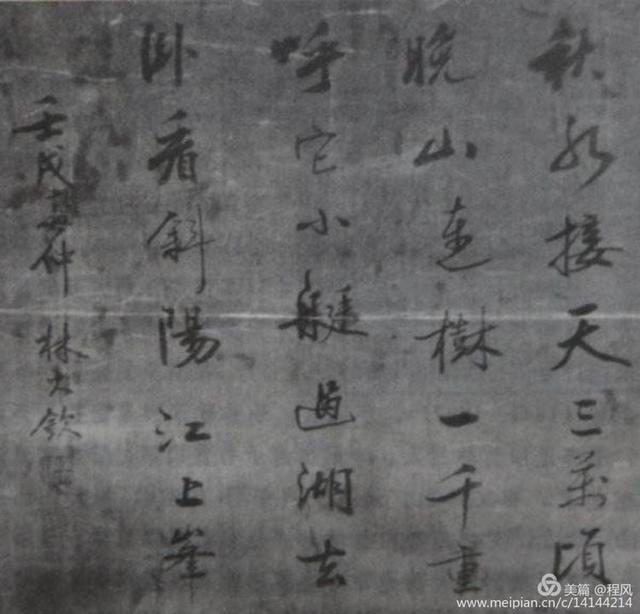 秋水接天三萬頃
晚山連樹一千重
呼它小艇過湖去
卧看斜陽江上峯
壬戌春仲 林大欽
美篇 @程风
www.meipian.cn/c/14144214